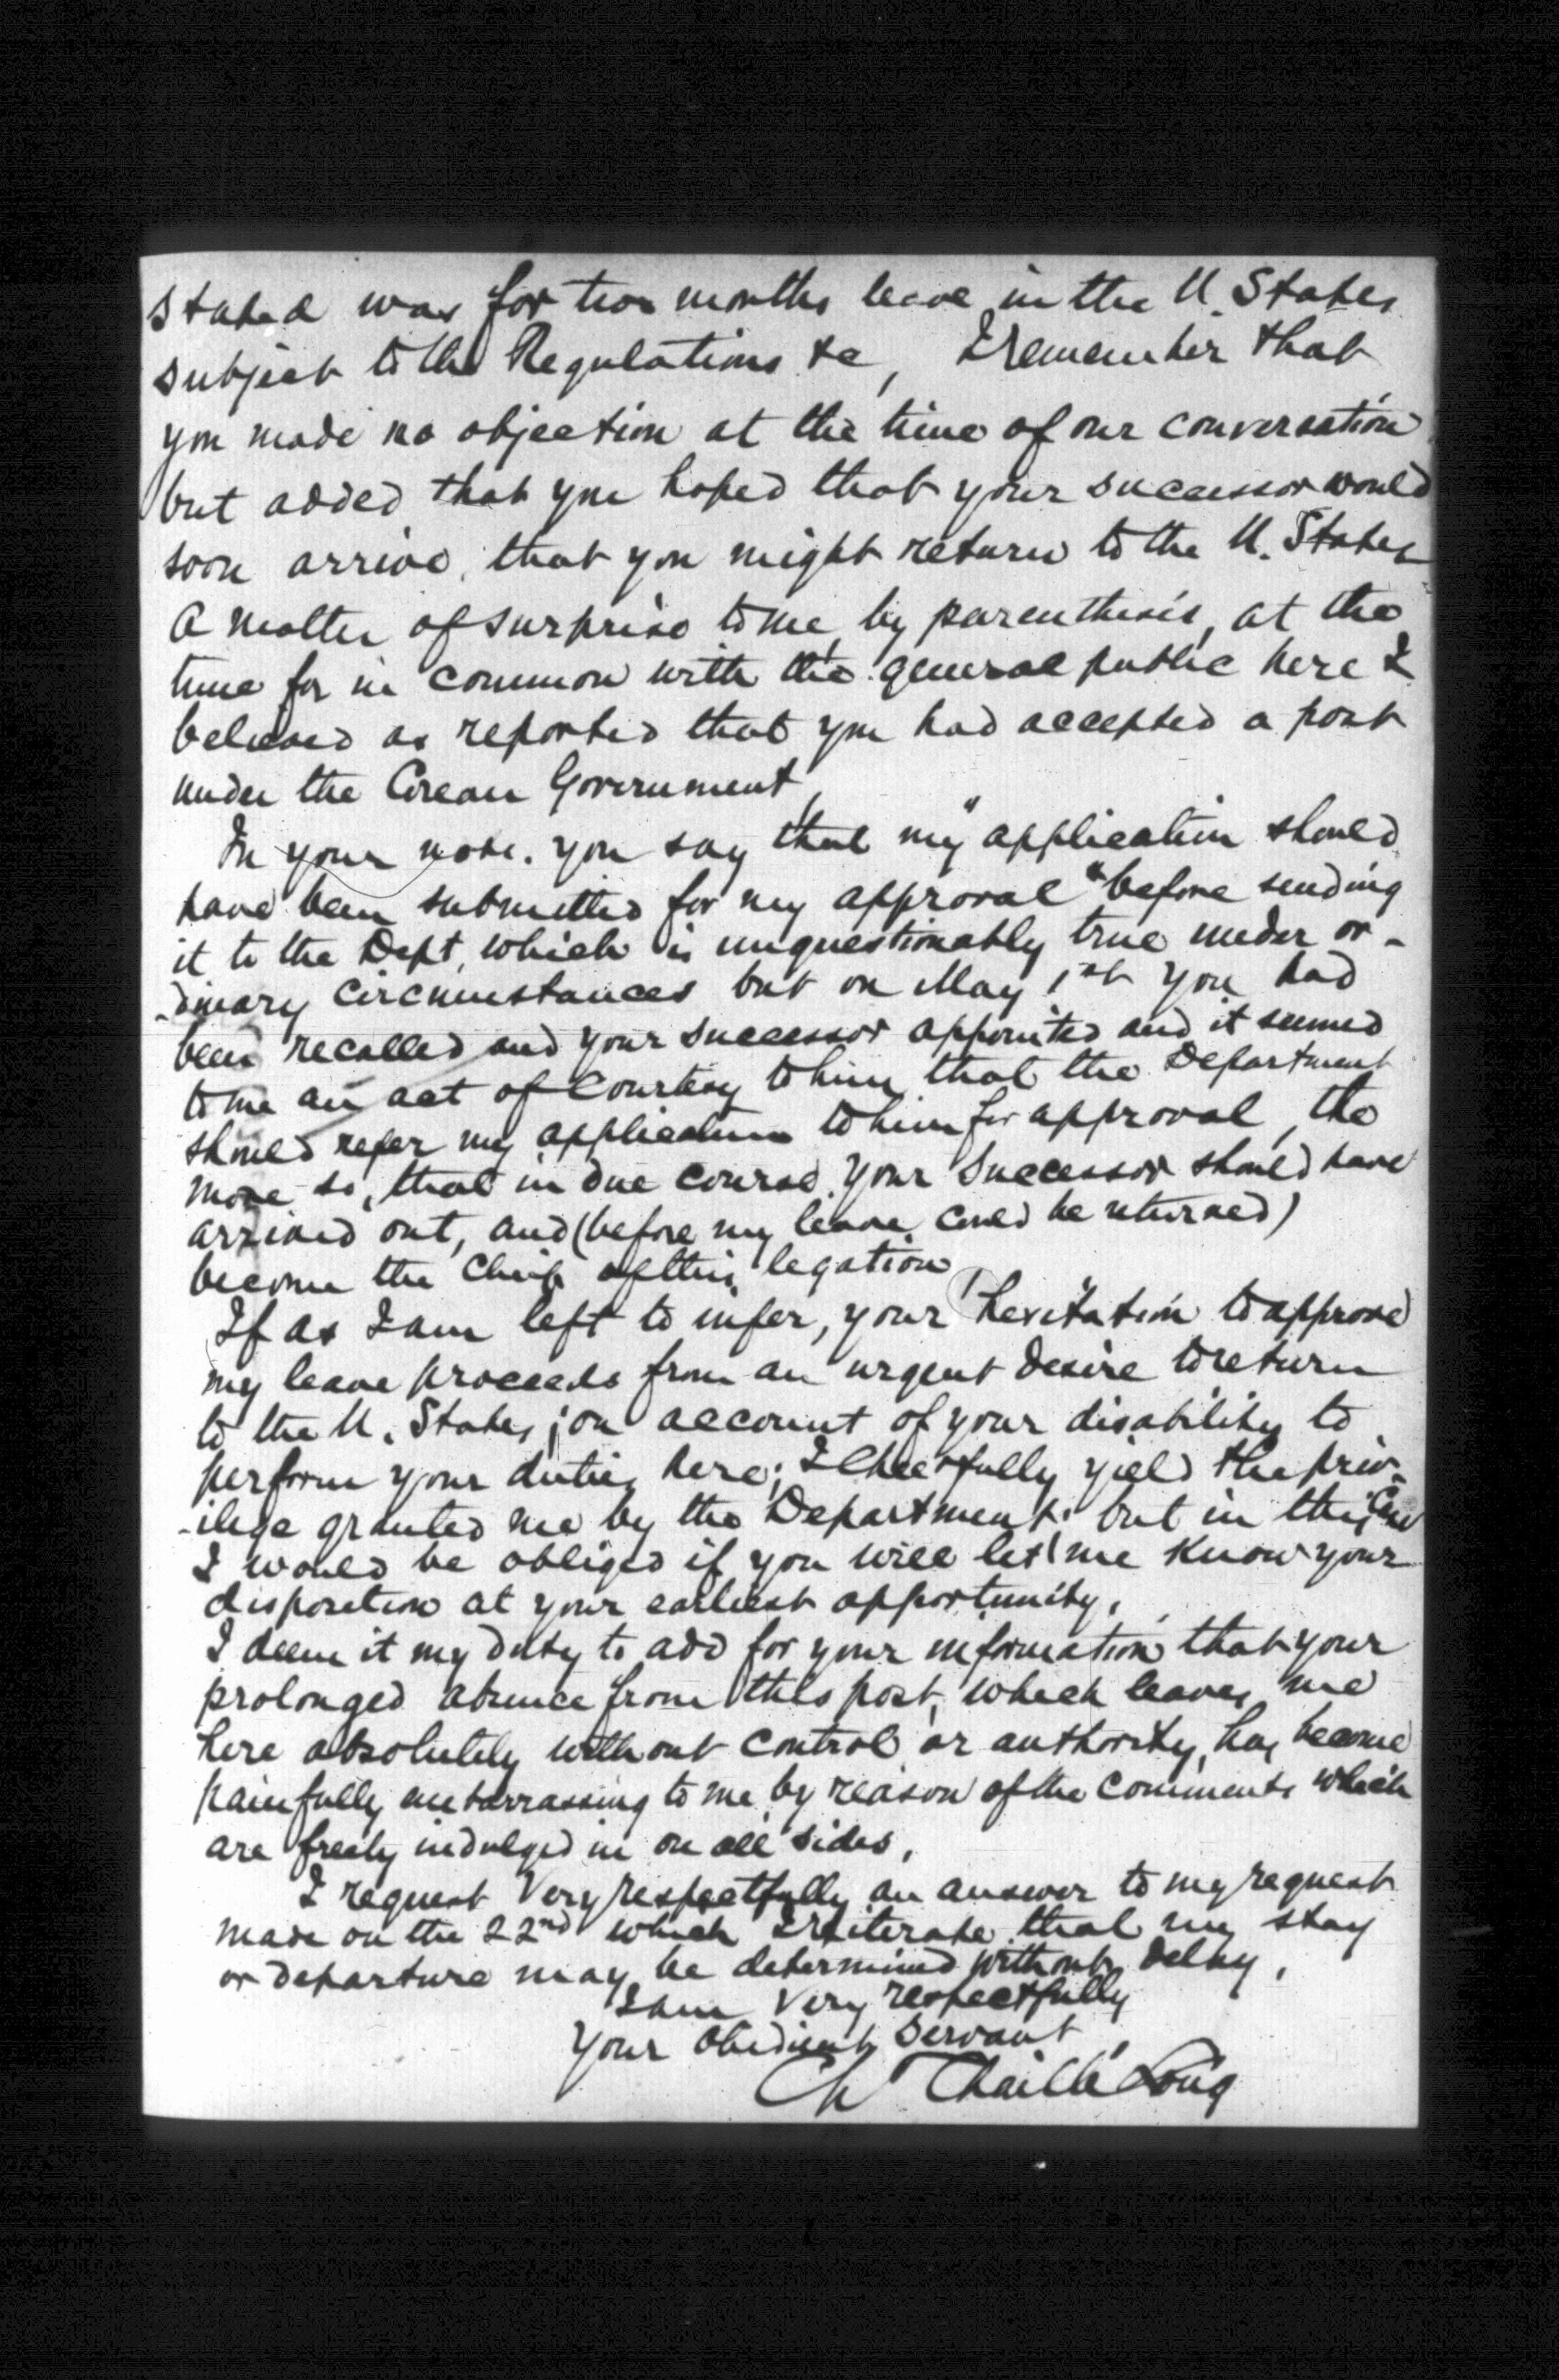 stated was for two months leave in the U. States
subject to the Regulations &c, I remember that
you made no objection at the time of our conversation
but added that you hoped that your successor would
soon arrive, that you might return to the U. States
a matter of surprise to me, by parenthesis, at the
time for in common with the general public here I
believed as reported that you had accepted a post
under the Corean Government,
In your note. you say that my "application should
have been submitted for my approval" before sending
it to the Dept, which is unquestionably true under or-
-dinary circumstances but on May 1st you had
been recalled and your successor appointed and it seemed
to me an act of Courtesy to him that the Department
should refer my application to him for approval, the
more so, that in due course your successor should have
arrived out, and (before my leave could be returned)
become the Chief of this legation
If as I am left to infer, your hesitation to approve
my leave proceeds from an urgent desire to return
to the U. States; on account of your disability to
perform your duties here; I Cheerfully yield the priv-
-ilege granted me by the Department. but in this Case
I would be obliged if you will let me know your
disposition at your earliest opportunity.
I deem it my duty to add for your information that your
prolonged absence from this post, which leaves me
here absolutely without control or authority, has become
painfully embarrassing to me by reason of the comments which
are freely indulged in on all sides.
I request Very respectfully an answer to my request
made on the 22nd which I reiterate that my stay
or departure may be determined without delay.
I am Very respectfully
Your Obedient Servant
Ch Chaillé Long